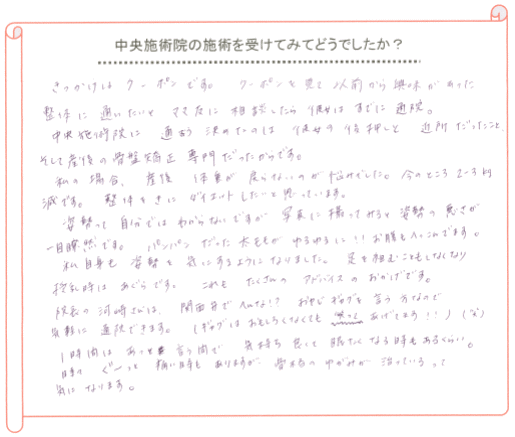 中央施術院の施術を受けてみてどうでしたか？
きっかけは クーポンです。 クーポンを見て 以前から興味があった
整体に 通いたいと ママ友に 相談したら 彼女は すでに 通院。
中央施術院に 通おう 決めたのは 彼女の 後押しと 近所だったこと
そして産後の骨盤矯正 専門だったからです。
私の場合、 産後 体重が 戻らないのが 悩みでした。 今のところ 2〜3kg
減です。 整体を きに ダイエットしたいと思っています。
姿勢って 自分では わからないですが 写真に 撮ってみると 姿勢の 悪さが
一目瞭然です。 パンパン だった 太ももが ゆるゆるに!! お腹も へこんできます。
私自身も 姿勢を 気にするようになりました。 足を組むこともしなくなり
授乳時は あぐらです。 これも たくさんの アドバイスの おかげです。
院長の 河崎さんは、 関西弁で 言う方なので
気軽に 通院できます。 (ギャグは おもしろくなくても 笑って あげてます!!) (笑)
1時間は あっと 言う間で 気持ち 良くて 眠たくなる時もあるくらい。
ぐーっと 痛い時も ありますが 骨格の ゆがみが 治っている って
気に なります。